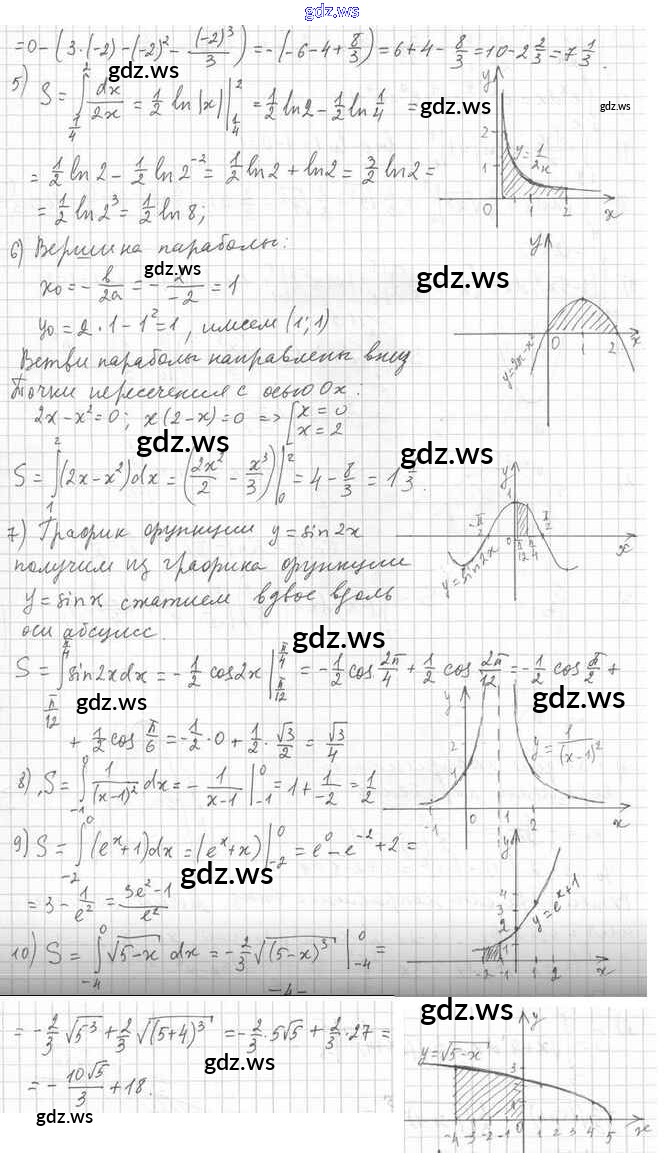 gdz.ws
= 0 - (3·(-2) - (-2)² - (-2)³/3) = -(-6-4+8/3) = 6+4-8/3 = 10-2 2/3 = 7 1/3.
gdz.ws
5) S = ∫_{1/4}^{2} dx/2x = 1/2 ln|x| |_{1/4}^{2} = 1/2 ln2 - 1/2 ln 1/4 =
gdz.ws
gdz.ws
= 1/2 ln2 - 1/2 ln2⁻² = 1/2 ln2 + ln2 = 3/2 ln2 =
= 1/2 ln2³ = 1/2 ln8;
y
2
1
y = 1/2x
0 1 2 x
6) Вершина параболы:
gdz.ws
x₀ = - b/2a = - 2/-2 = 1
gdz.ws
y₀ = 2·1-1² = 1, имеем (1; 1)
Ветви параболы направлены вниз
Точки пересечения с осью Ox:
2x-x²=0; x(2-x)=0 => [x=0
x=2
y
0 1 2 x
y=2x-x²
gdz.ws
gdz.ws
S = ∫_{1}^{2} (2x-x²)dx = (2x²/2 - x³/3) |_{0}^{2} = 4 - 8/3 = 1 1/3.
7) График функции y = sin2x
получим из графика функции
y = sinx сжатием вдвое вдоль
оси абсцисс.
y
1
-π/2 0 π/12 π/4 π/2 x
y = sin2x
gdz.ws
S = ∫_{π/12}^{π/4} sin2xdx = -1/2 cos2x |_{π/12}^{π/4} = -1/2 cos 2π/4 + 1/2 cos 2π/12 = -1/2 cos π/2 +
gdz.ws
gdz.ws
+ 1/2 cos π/6 = -1/2·0 + 1/2·√3/2 = √3/4
8) S = ∫_{-1}^{0} 1/(x-1)² dx = - 1/(x-1) |_{-1}^{0} = 1 + 1/-2 = 1/2
y
2
1
y = 1/(x-1)²
-1 0 1 2 x
9) S = ∫_{-2}^{0} (eˣ+1)dx = (eˣ+x) |_{-2}^{0} = e⁰-e⁻²+2 =
gdz.ws
gdz.ws
= 3 - 1/e² = 3e²-1/e²
y
4
3
2
1
y = eˣ+1
-2 -1 1 2 x
10) S = ∫_{-4}^{0} √5-x dx = -2/3 √(5-x)³ |_{-4}^{0} =
-4-
gdz.ws
= -2/3 √5³ + 2/3 √(5+4)³ = -2/3·5√5 + 2/3·27 =
gdz.ws
= - 10√5/3 + 18.
gdz.ws
y
y=√5-x
3
2
-4 -3 -2 -1 0 1 2 3 4 5 x